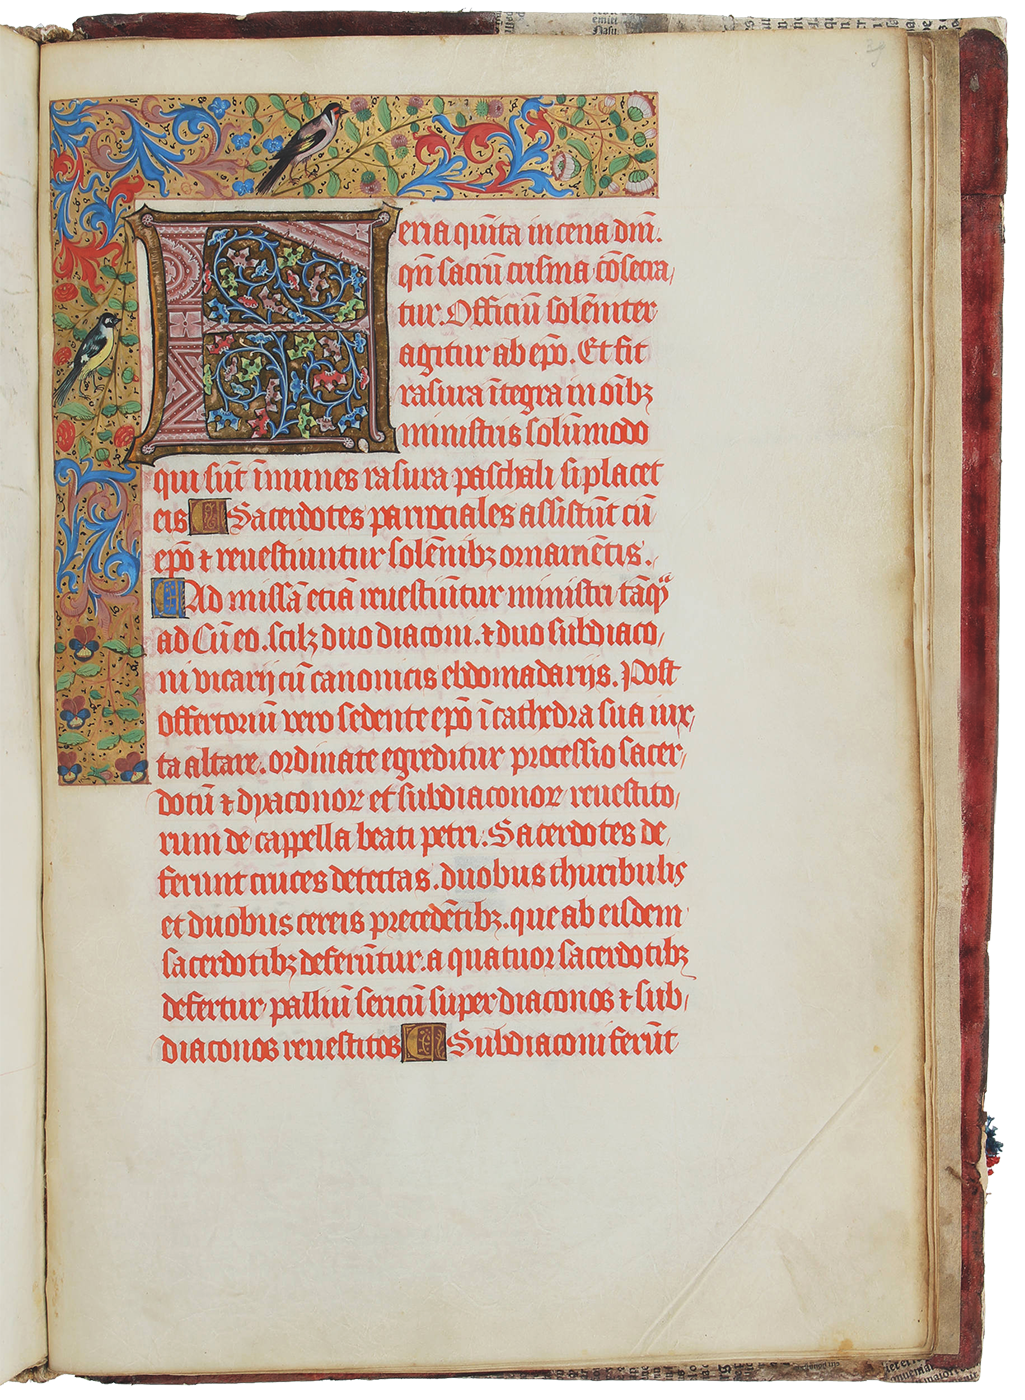 Feria qui̅ta in cena dn̅i.
qn̅ sacru̅ crisma co̅secra,
tur. Officiu̅ sole̅niter
agitur ab ep̅o. Et fit
rasura i̅tegra in oi̅bꝫ
ministris solu̅modo
qui su̅t i̅munes rasura paschali si placet
eis Sacerdotes parrociales assistu̅t cu̅
ep̅o ⁊ reuestiuntur sole̅nibꝫ orname̅tis.
Ad missa̅ ecia̅ reuestiu̅tur ministri ta̅qͣꝫ
ad Cu̅ eo. scilꝫ duo diaconi. ⁊ duo subdiaco,
ni vicarij cu̅ canonicis ebdomadarijs. Post
offertoriu̅ vero sedente ep̅o i̅ cathedra sua iux,
ta altare. ordinate egreditur processio sacer,
dotu̅ ⁊ dyaconoꝝ et subdiaconoꝝ reuestito,
rum de cappella beati petri. Sacerdotes de,
ferunt cruces detectas. duobus thuribulis
et duobus cereis precede̅tibꝫ. que ab eisdem
sacerdotibꝫ deferu̅tur. a quatuor sacerdotibꝫ
defertur palliu̅ sericu̅ super diaconos ⁊ sub,
diaconos reuestitos Subdiaconi feru̅t